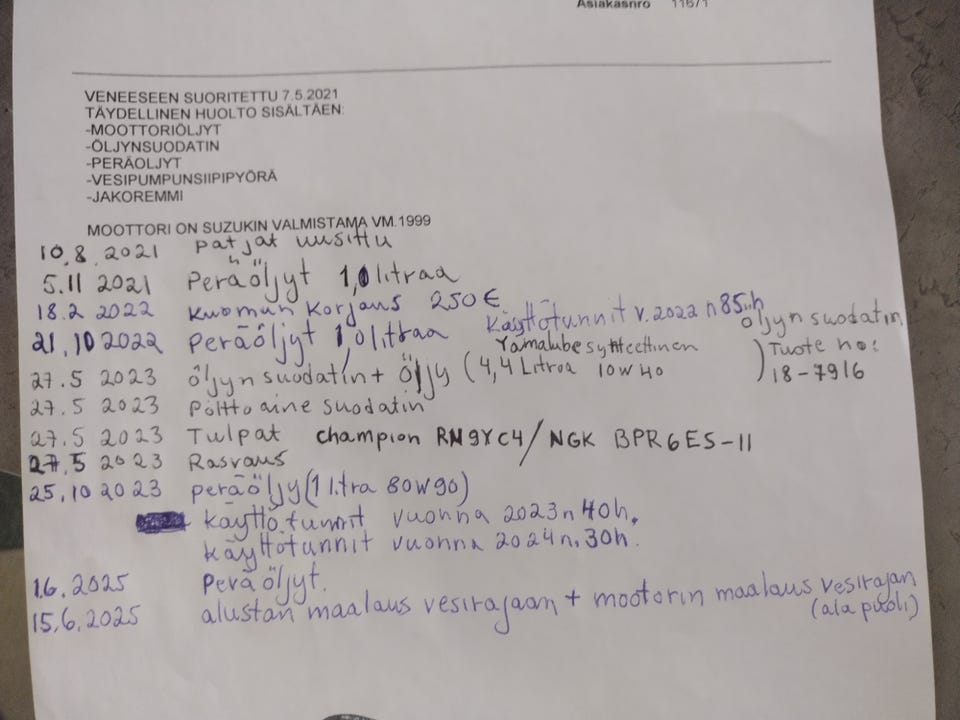 Asiakasnro 11671
VENEESEEN SUORITETTU 7.5.2021
TÄYDELLINEN HUOLTO SISÄLTÄEN:
-MOOTTORIÖLJYT
-ÖLJYNSUODATIN
-PERÄOLJYT
-VESIPUMPUNSIIPIPYÖRÄ
-JAKOREMMI
MOOTTORI ON SUZUKIN VALMISTAMA VM.1999
10.8.2021 patjat uusittu
5.11 2021 Peräöljyt 1,0 litraa
18.2 2022 Kuomun korjaus 250 €
Käyttötunnit v.2022 n 85h
21.10 2022 Peräöljyt 1,0 litraa
27.5 2023 öljyn suodatin + Öljy (4,4 Litraa 10W40 Yamalube synteettinen)
öljyn suodatin
Tuote no:
18-7916
27.5 2023 Polttoaine suodatin
27.5 2023 Tulpat champion RN9YC4/NGK BPR6ES-11
27.5 2023 Rasvaus
25.10 2023 peräöljy (1 litra 80W90)
käyttö tunnit vuonna 2023 n 40h.
käyttötunnit vuonna 2024 n. 30h.
1.6.2025 Peräöljyt.
15.6.2025 alustan maalaus vesirajaan + mootorin maalaus vesirajan
(ala puoli)